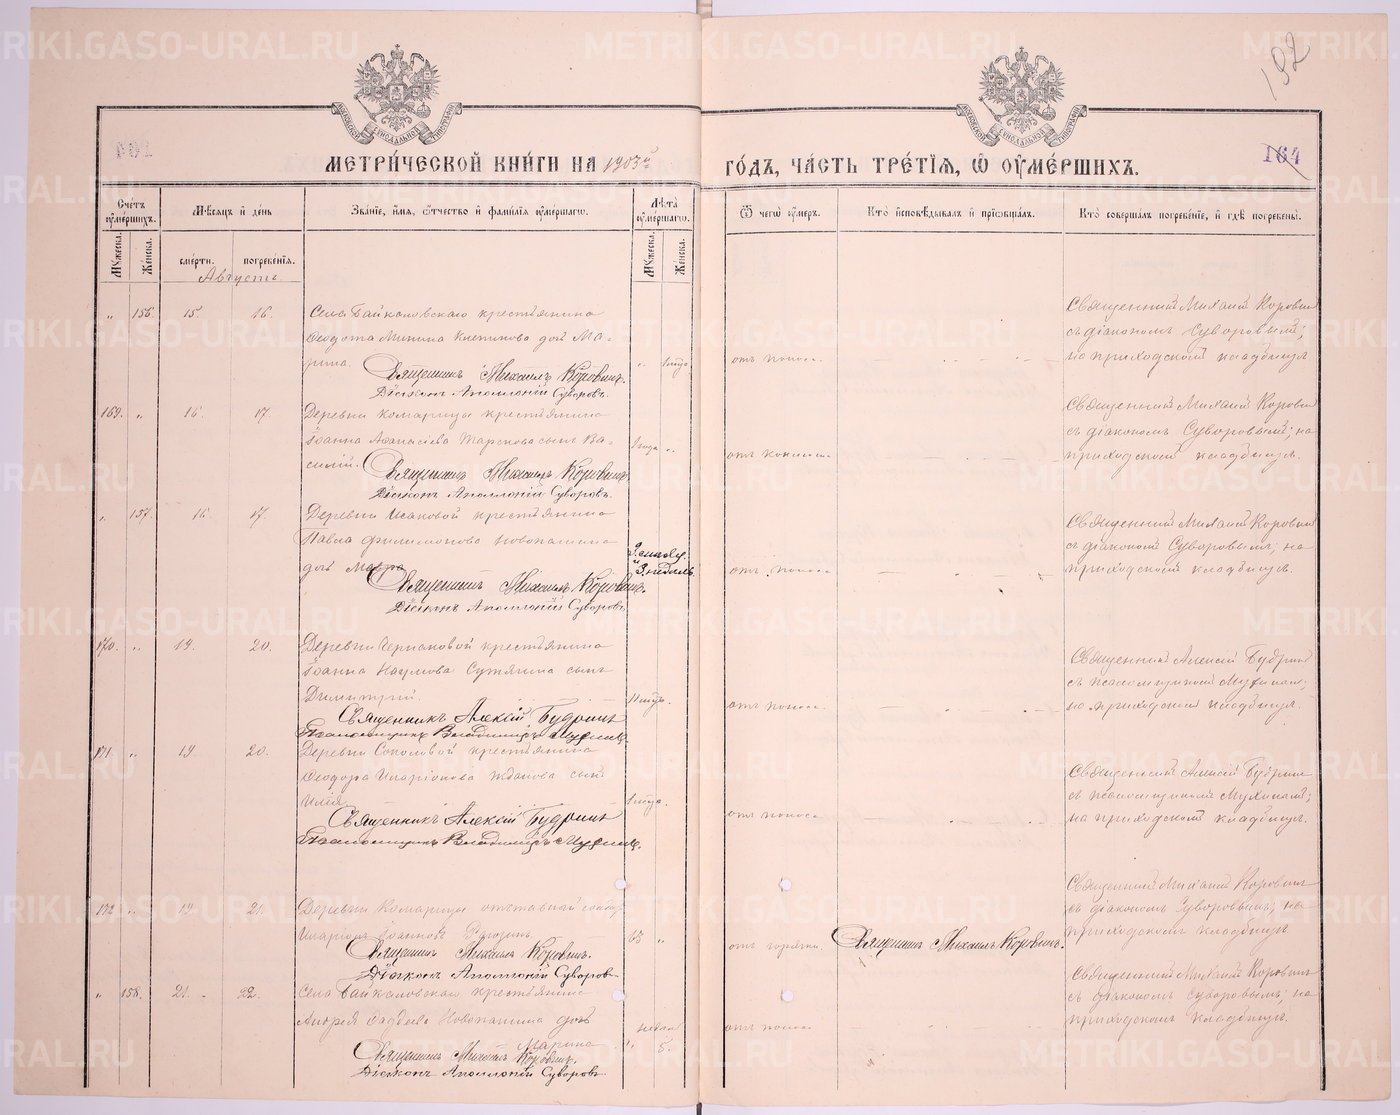 192
МЕТРИ́ЧЕСКОЙ КНИ́ГИ НА 1903й
ГО́ДЪ, ЧА́СТЬ ТРЕ́ТІѦ, Ѡ҆ ОУ҆МЕ́РШИХЪ.
164
Счетъ оумершихъ.
Мѣсяцъ и день
Званіе, имя, отчество и фамилія оумершагѡ.
Лѣта оумершагѡ.
Ѿ чегѡ оумеръ.
Кто исповѣдывалъ и пріобщалъ.
Кто совершалъ погребеніе, и гдѣ погребены.
Мужеска.
Женска.
смерти.
погребенія.
Мужеска.
Женска.
Августъ.
" 156. 15. 16. Села Байкаловскаго крестьянина
Ѳеодота Минина дочь Ма-
рина. " 1 года
Священникъ Михаилъ Коровинъ.
Діаконъ Аполлоній Суворовъ.
отъ поноса.
Священникъ Михаилъ Коровинъ
съ діакономъ Суворовымъ;
на приходскомъ кладбищѣ
169. " 16. 17. Деревни Комарицы крестьянина
Іоанна Аѳанасіева сынъ Ва-
силій. 1 года "
Священникъ Михаилъ Коровинъ.
Діаконъ Аполлоній Суворовъ.
отъ
Священникъ Михаилъ Коровинъ
съ діакономъ Суворовымъ; на
приходскомъ кладбищѣ.
" 157. 16. 17. Деревни Исаковой крестьянина
Павла Филимонова Новопашина
дочь Мавра
и 3 недѣль
Священникъ Михаилъ Коровинъ.
Діаконъ Аполлоній Суворовъ
отъ поноса
Священникъ Михаилъ Коровинъ
съ діакономъ Суворовымъ; на
приходскомъ кладбищѣ.
170. " 19. 20. Деревни крестьянина
Іоанна Наумова сынъ
Димитрій.
Священникъ Алексій Будринъ
Псаломщикъ Владиміръ Мухинъ
отъ поноса.
Священникъ Алексій Будринъ
съ псаломщикомъ Мухинымъ;
на приходскомъ кладбищѣ.
171. " 19. 20. Деревни Соколовой крестьянина
Ѳеодора Иларіонова Жданова сынъ
Илія. 1 года.
Священникъ Алексій Будринъ
Псаломщикъ Владиміръ Мухинъ.
отъ поноса
Священникъ Алексій Будринъ
съ псаломщикомъ Мухинымъ;
на приходскомъ кладбищѣ.
172 " 19 21. Деревни Комарицы отставной
Иларіонъ Іоанновъ "
Священникъ Михаилъ Коровинъ.
Діаконъ Аполлоній Суворовъ
отъ горячки. Священникъ Михаилъ Коровинъ.
Священникъ Михаилъ Коровинъ
съ діакономъ Суворовымъ; на
приходскомъ кладбищѣ
" 158. 21. 22. Села Байкаловскаго крестьянина
Андрея Ѳаддеева Новопашина дочь
Марина недѣль 5.
Священникъ Михаилъ Коровинъ.
Діаконъ Аполлоній Суворовъ.
отъ поноса
Священникъ Михаилъ Коровинъ
съ діакономъ Суворовымъ; на
приходскомъ кладбищѣ.
METRIKI.GASO-URAL.RU